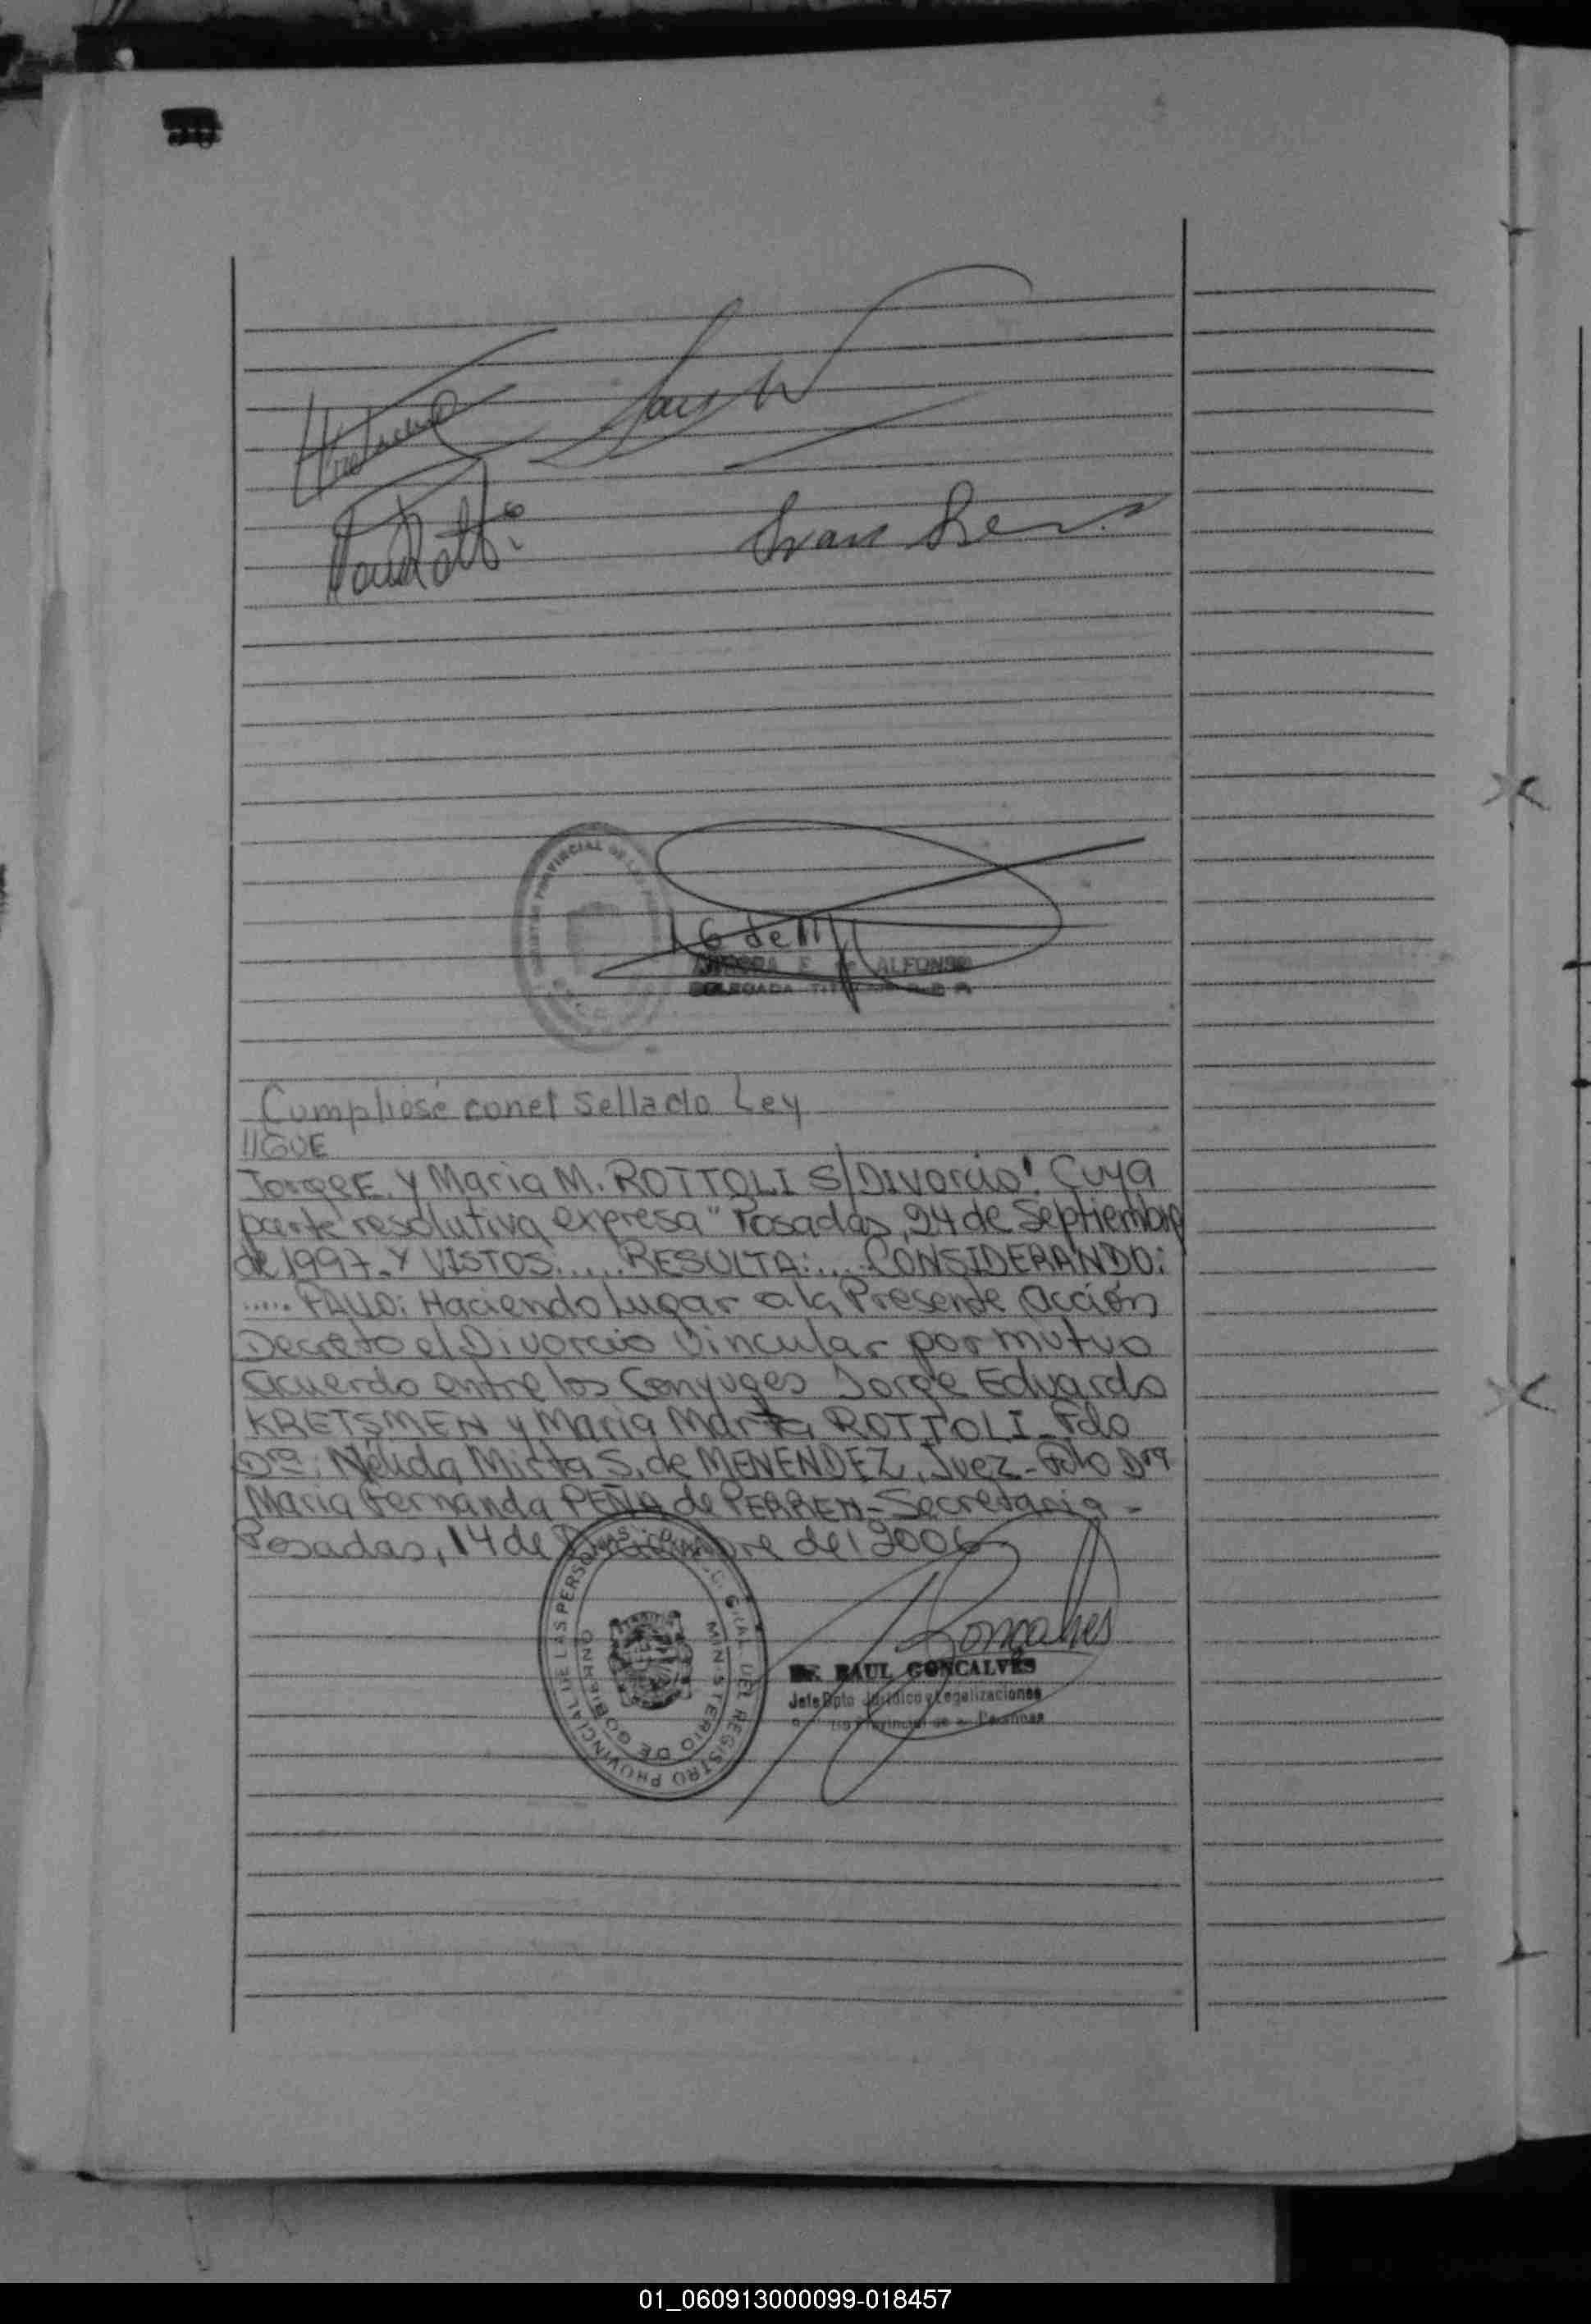 Cumpliose con el Sellado Ley
//GUE
Jorge E. y Maria M. ROTTOLI S/Divorcio". Cuya
parte resolutiva expresa "Posadas, 24 de Septiembre
de 1997. Y VISTOS:..... RESULTA:.... CONSIDERANDO:
..... FALLO: Haciendo Lugar a la Presente acción
Decreto el Divorcio Vincular por mutuo
acuerdo entre los Conyuges Jorge Eduardo
KRETSMEN y Maria Marta ROTTOLI - Fdo
Dra: Nélida Mirta S. de MENENDEZ, Juez - Fdo Dra
Maria Fernanda PEÑA de PERREN - Secretaria -
Posadas, 14 de de 2006
REGISTRO PROVINCIAL DE LAS PERSONAS
MINISTERIO DE GOBIERNO
RAUL GONCALVES
Jefe Dpto Jurídico y Legalizaciones
01_060913000099-018457